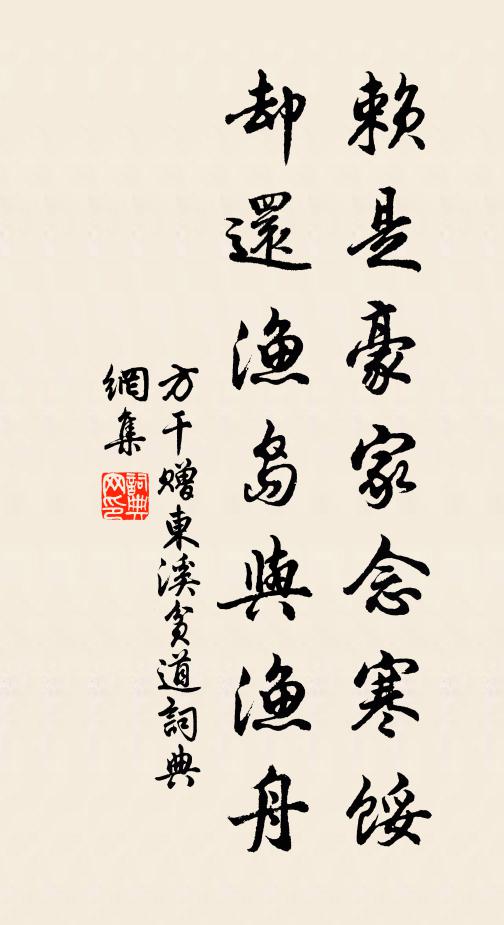 賴是豪家念寒餒
却還漁島與漁舟
方干赠東溪貧道詞典
網集
詞典网印